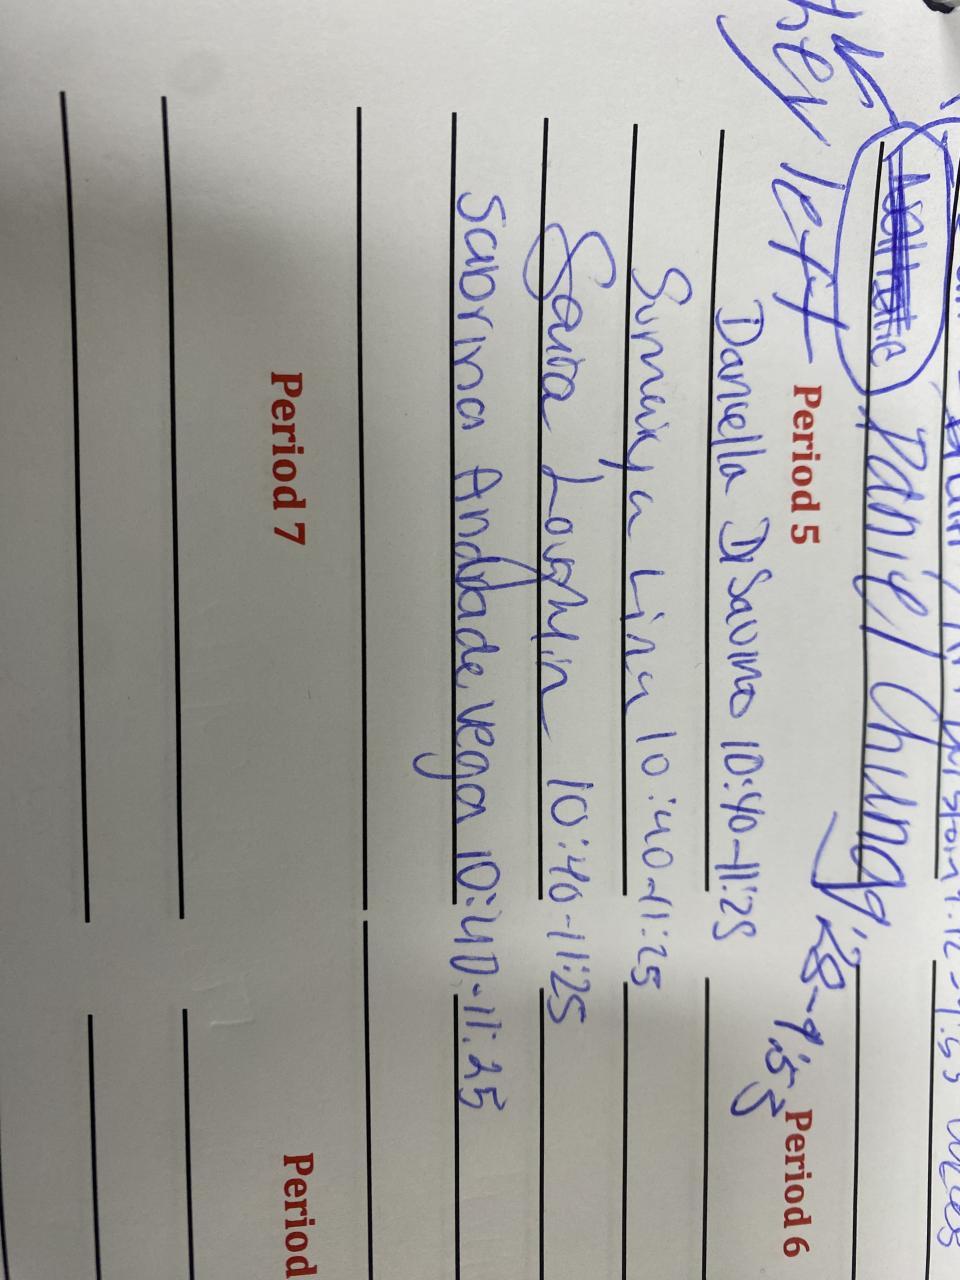 they left
Daniel Chung 9:28-9:53
Period 5
Period 6
Daniella DiSavino 10:40-11:25
Sumaiya Lina 10:40-11:25
Saira Loughlin 10:40-11:25
Sabrina Andrade Vega 10:40-11:25
Period 7
Period